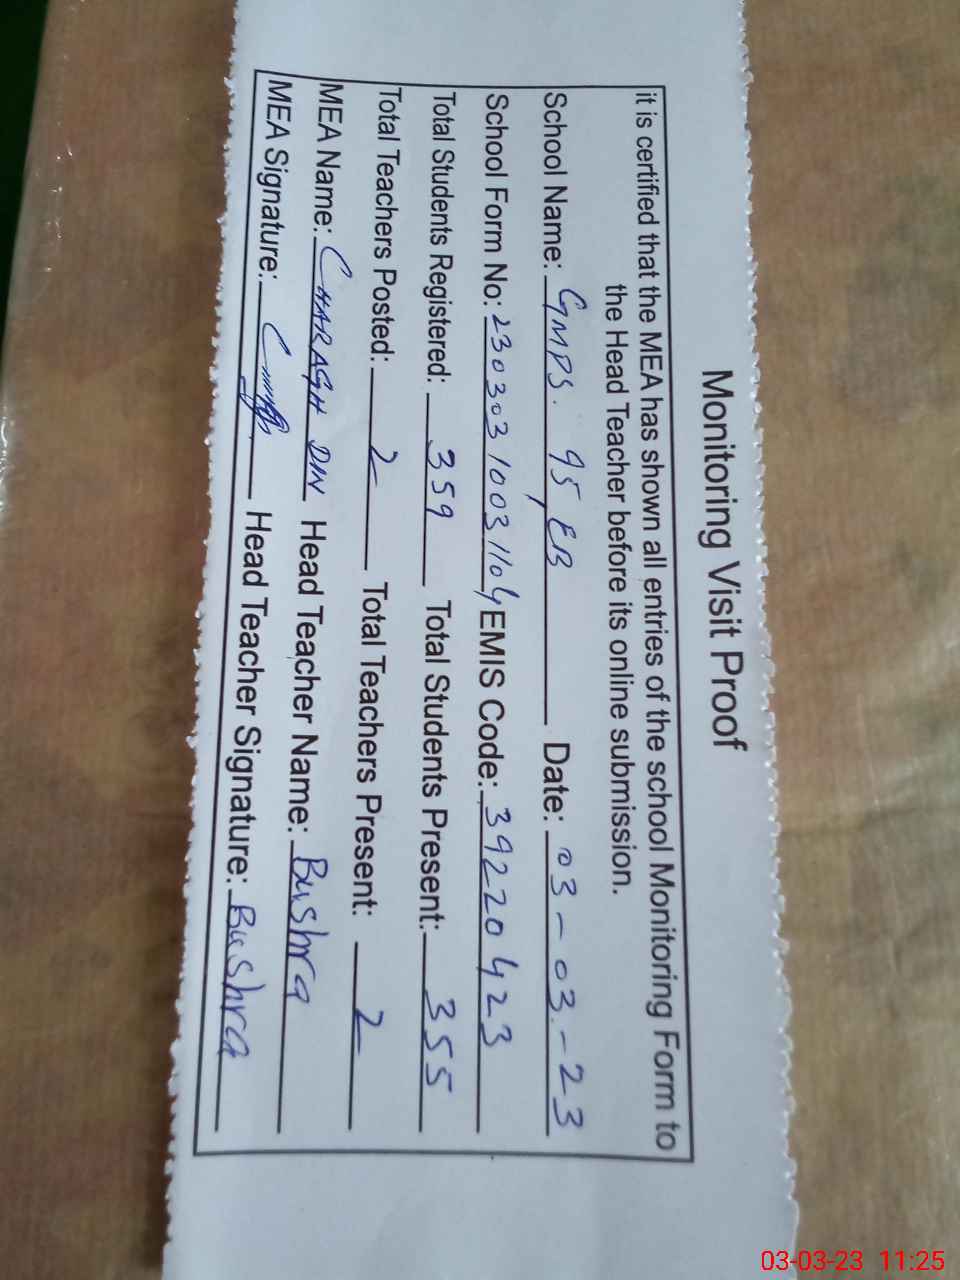 Monitoring Visit Proof
it is certified that the MEA has shown all entries of the school Monitoring Form to
the Head Teacher before its online submission.
School Name: GMPS. 95/EB Date: 03-03-23
School Form No: 23030310031104 EMIS Code: 39220423
Total Students Registered: 359 Total Students Present: 355
Total Teachers Posted: 2 Total Teachers Present: 2
MEA Name: CHARAGH DIN Head Teacher Name: Bushra
MEA Signature: Head Teacher Signature: Bushra
03-03-23 11:25